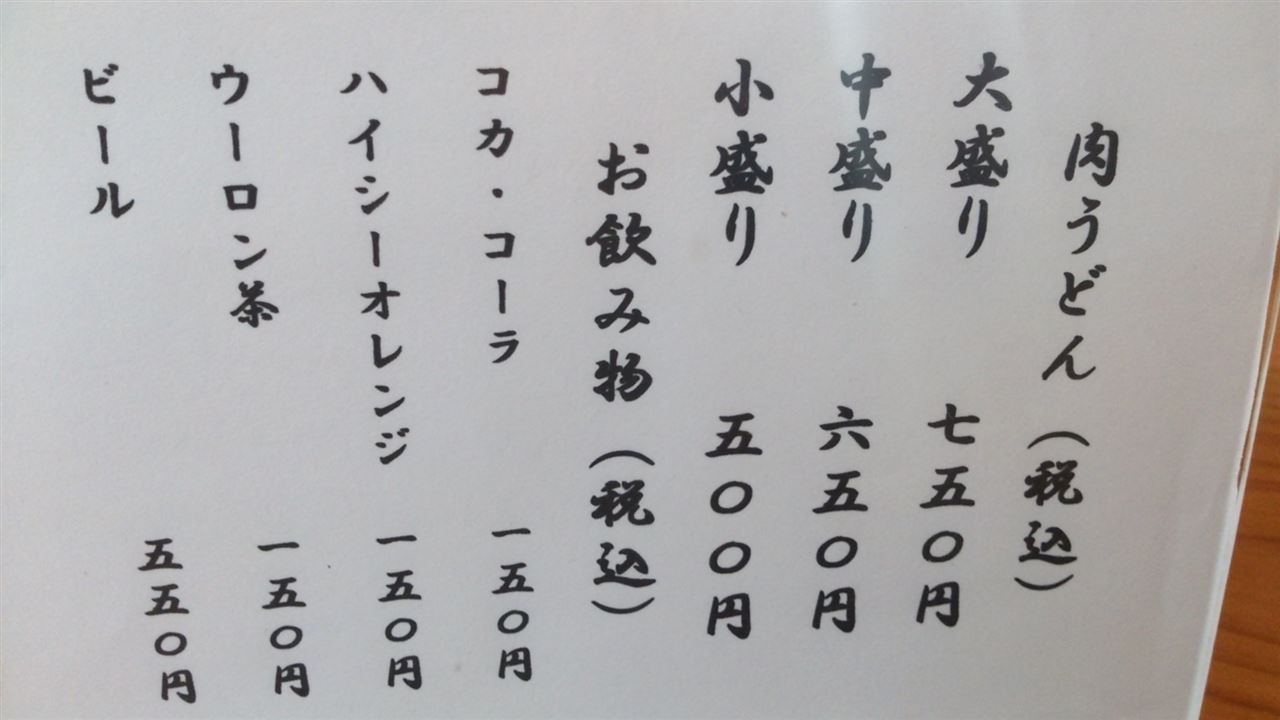 肉うどん（税込）
大盛り 七五〇円
中盛り 六五〇円
小盛り 五〇〇円
お飲み物（税込）
コカ・コーラ 一五〇円
ハイシーオレンジ 一五〇円
ウーロン茶 一五〇円
ビール 五五〇円